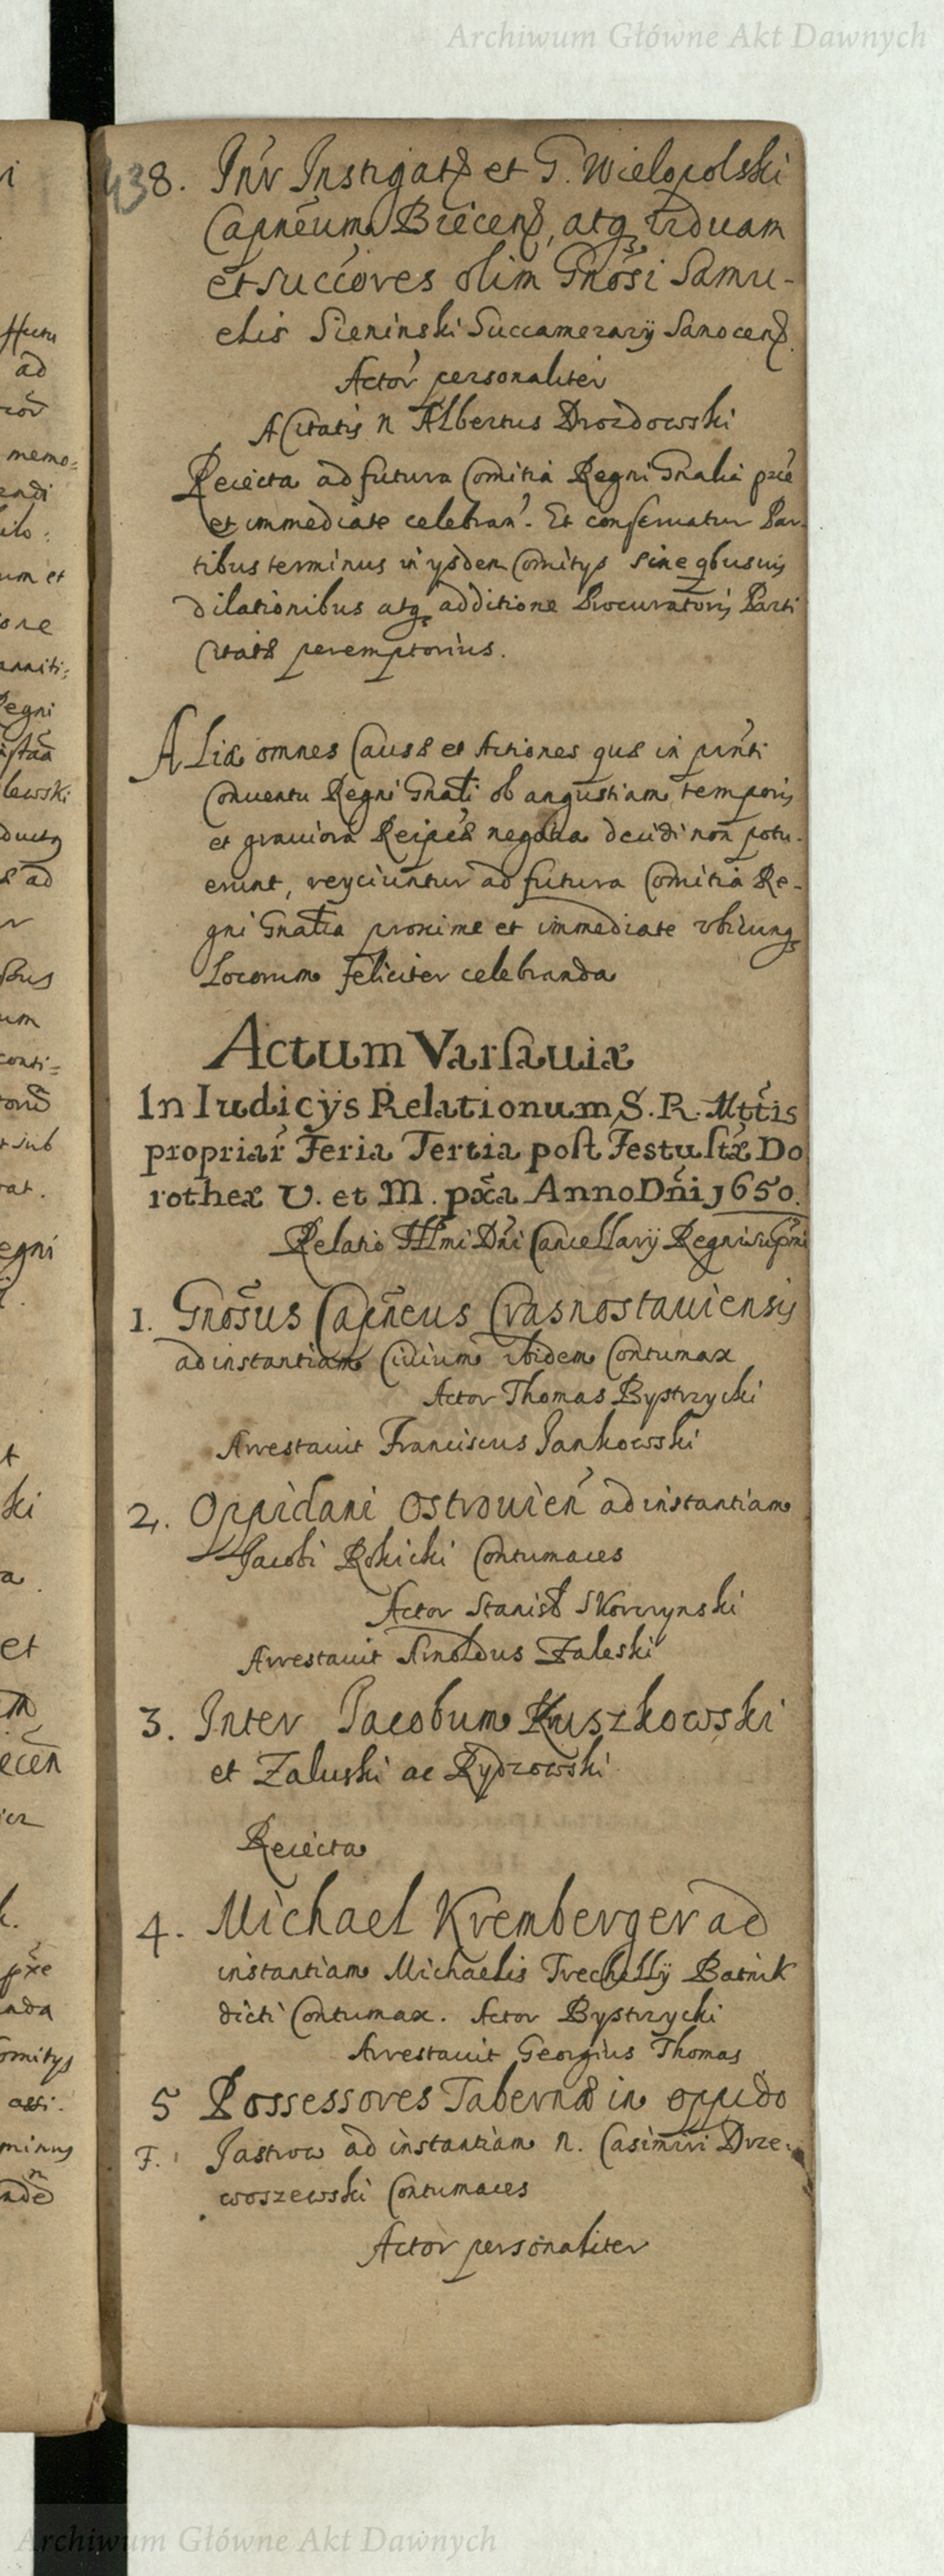 Archiwum Główne Akt Dawnych
438. Intr Instigat et G. Wielopolski
Capneum Biecens, atq viduam
et succores olim Gnosi Samu-
elis Sieninski Succamerarij Sanocens.
Actor personaliter
A Citatis n Albertus Drozdowski
Reiecta ad futura Comitia Regni Gnalia
et immediate celebran. Et conservatur Par-
tibus terminus in ijsdem Comitijs sine qbusvis
dilationibus atq additione Procuratoris Parti
Citatae peremptorius.
Aliae omnes Causae et Actiones quae in pnti
Conventu Regni Gnali ob angustiam temporis
et graviora Reipcae negotia decidi non potu-
erunt, reyciuntur ad futura Comitia Re-
gni Gnalia proxime et immediate vbicunq
Locorum feliciter celebranda
Actum Varsauiæ
In Iudicijs Relationum S. R. Mttis
propriar Feria Tertia post Festu stæ Do
rotheæ V. et M. pxa Anno Dni 1650.
Relatio Illmi Dni Cancellarij Regni supmi
1. Gnosus Capneus Crasnostauiensis
ad instantiam Civium ibidem Contumax
Actor Thomas Bystrzycki
Arrestauit Franciscus Jankowski
2. Oppidani Ostrouien ad instantiam
Jacobi Rokicki Contumaces
Actor Stanisl Skorczynski
Arrestauit Arnoldus Zaleski
3. Inter Jacobum Kuszkowski
et Zaluski ac Rydzowski
Reiecta
4. Michael Kremberger ad
instantiam Michaelis Trechelly Batnik
dicti Contumax. Actor Bystrzycki
Arrestauit Georgius Thomas
5 Possessores Tabernae in oppido
F. Jastrow ad instantiam n. Casimiri Drze-
woszewski Contumaces
Actor personaliter
Archiwum Główne Akt Dawnych